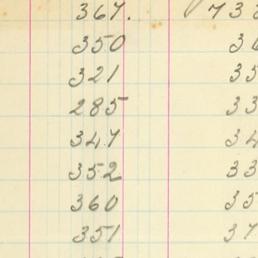 367. 738
350 36
321 35
285 33
347 34
352 33
360 35
351 37